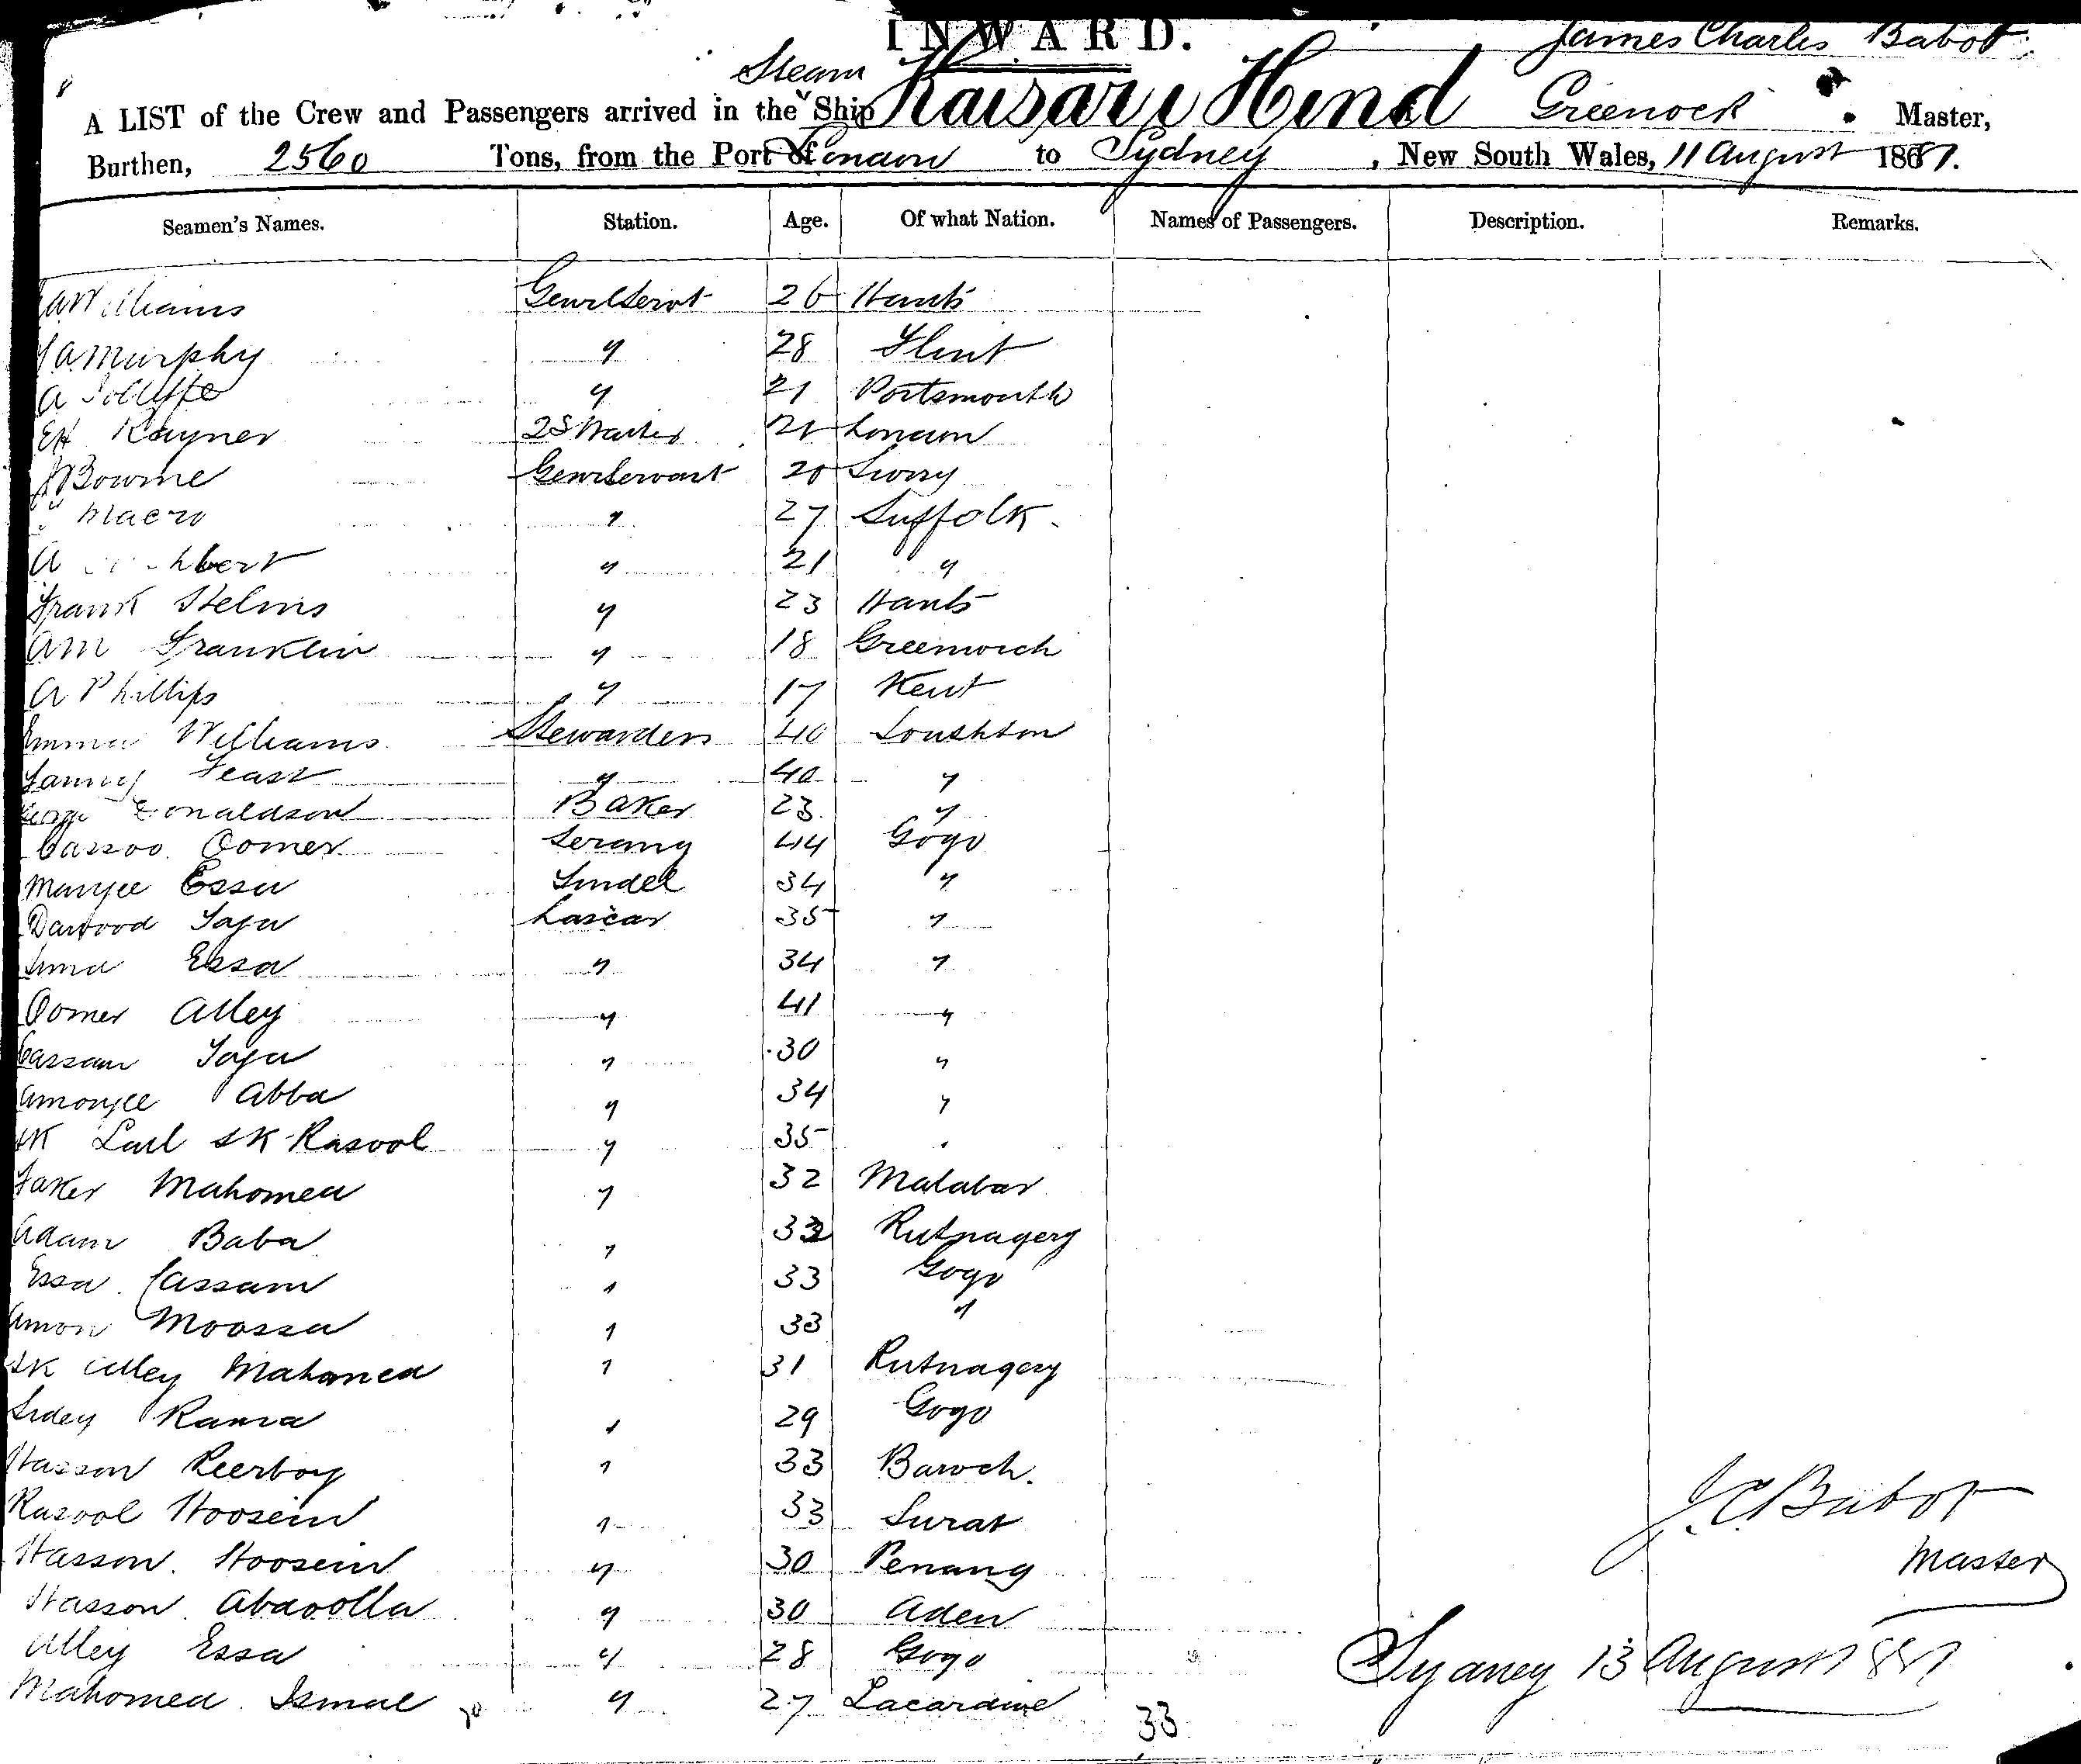 INWARD.
James Charles Babot
Steam
A LIST of the Crew and Passengers arrived in the Ship Kaisar i Hind Greenock Master,
Burthen, 2560 Tons, from the Port of London to Sydney, New South Wales, 11 August 1887.
Seamen's Names. Station. Age. Of what Nation. Names of Passengers. Description. Remarks.
Williams Genrl Servt 26 Hants
Murphy " 28 Flint
A Jolliffe " 21 Portsmouth
EH Rayner 2S Waiter 21 London
Bowrne Genrl Servant 20
Macro " 27 Suffolk
A " 21 "
Frank Helms " 23 Hants
AM Franklin " 18 Greenwich
A Phillips " 17 Kent
Emma Williams Stewardess 40
Fanny Feast " 40 "
Donaldson Baker 23 "
Cassoo Oomer Serang 44 Gogo
Munjee Essa Tindel 34 "
Dawood Jaju Lascar 35 "
Essa " 34 "
Oomer Alley " 41 "
Cassam Jaju " 30 "
Amonjee Abba " 34 "
SK Laul SK Rasool " 35 "
Faker Mahomed " 32 Malabar
Adam Baba " 33 Rutnagery
Essa Cassam " 33 Gogo
Amon Moossa " 33 "
SK Alley Mahomed " 31 Rutnagery
Rama " 29 Gogo
Hasson Peerboy " 33 Baroch.
Rasool Hoosein " 33 Surat
Hasson Hoosein " 30 Penang
Hasson Abdoolla " 30 Aden
Alley Essa " 28 Gogo
Mahomed Ismal " 27 Lacardive
33
J.C. Babot
Master
Sydney 13 August 1887